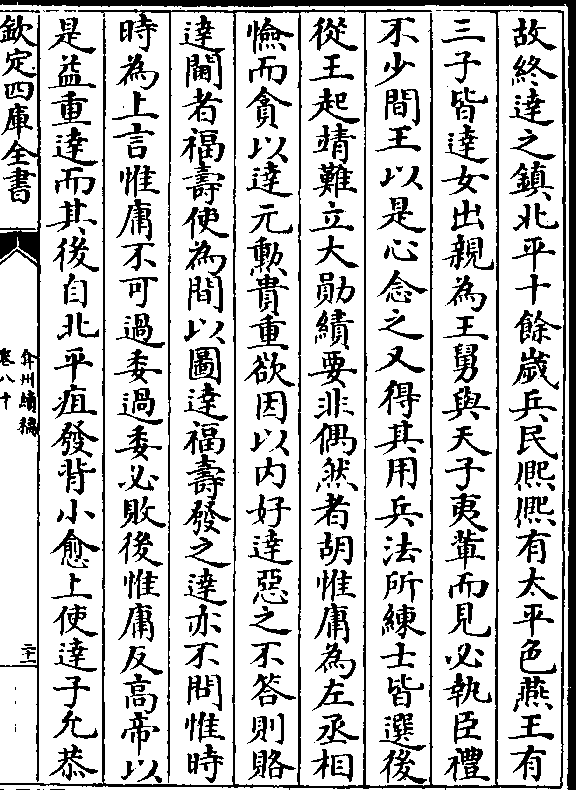 故終達之鎮北平十餘歲兵民熈熈有太平色燕王有
三子皆達女出親為王舅與天子夷軰而見必執臣禮
不少間王以是心念之又得其用兵法所練士皆選後
從王起靖難立大勛績要非偶然者胡惟庸為左丞相
憸而貪以達元勲貴重欲因以内好達惡之不答則賂
達閽者福壽使為間以圖達福壽發之達亦不問惟時
時為上言惟庸不可過委過委必敗後惟庸反高帝以
是益重達而其後自北平疽發背小愈上使達子允恭
欽定四庫全書
弇州續稿
卷八十
二十一